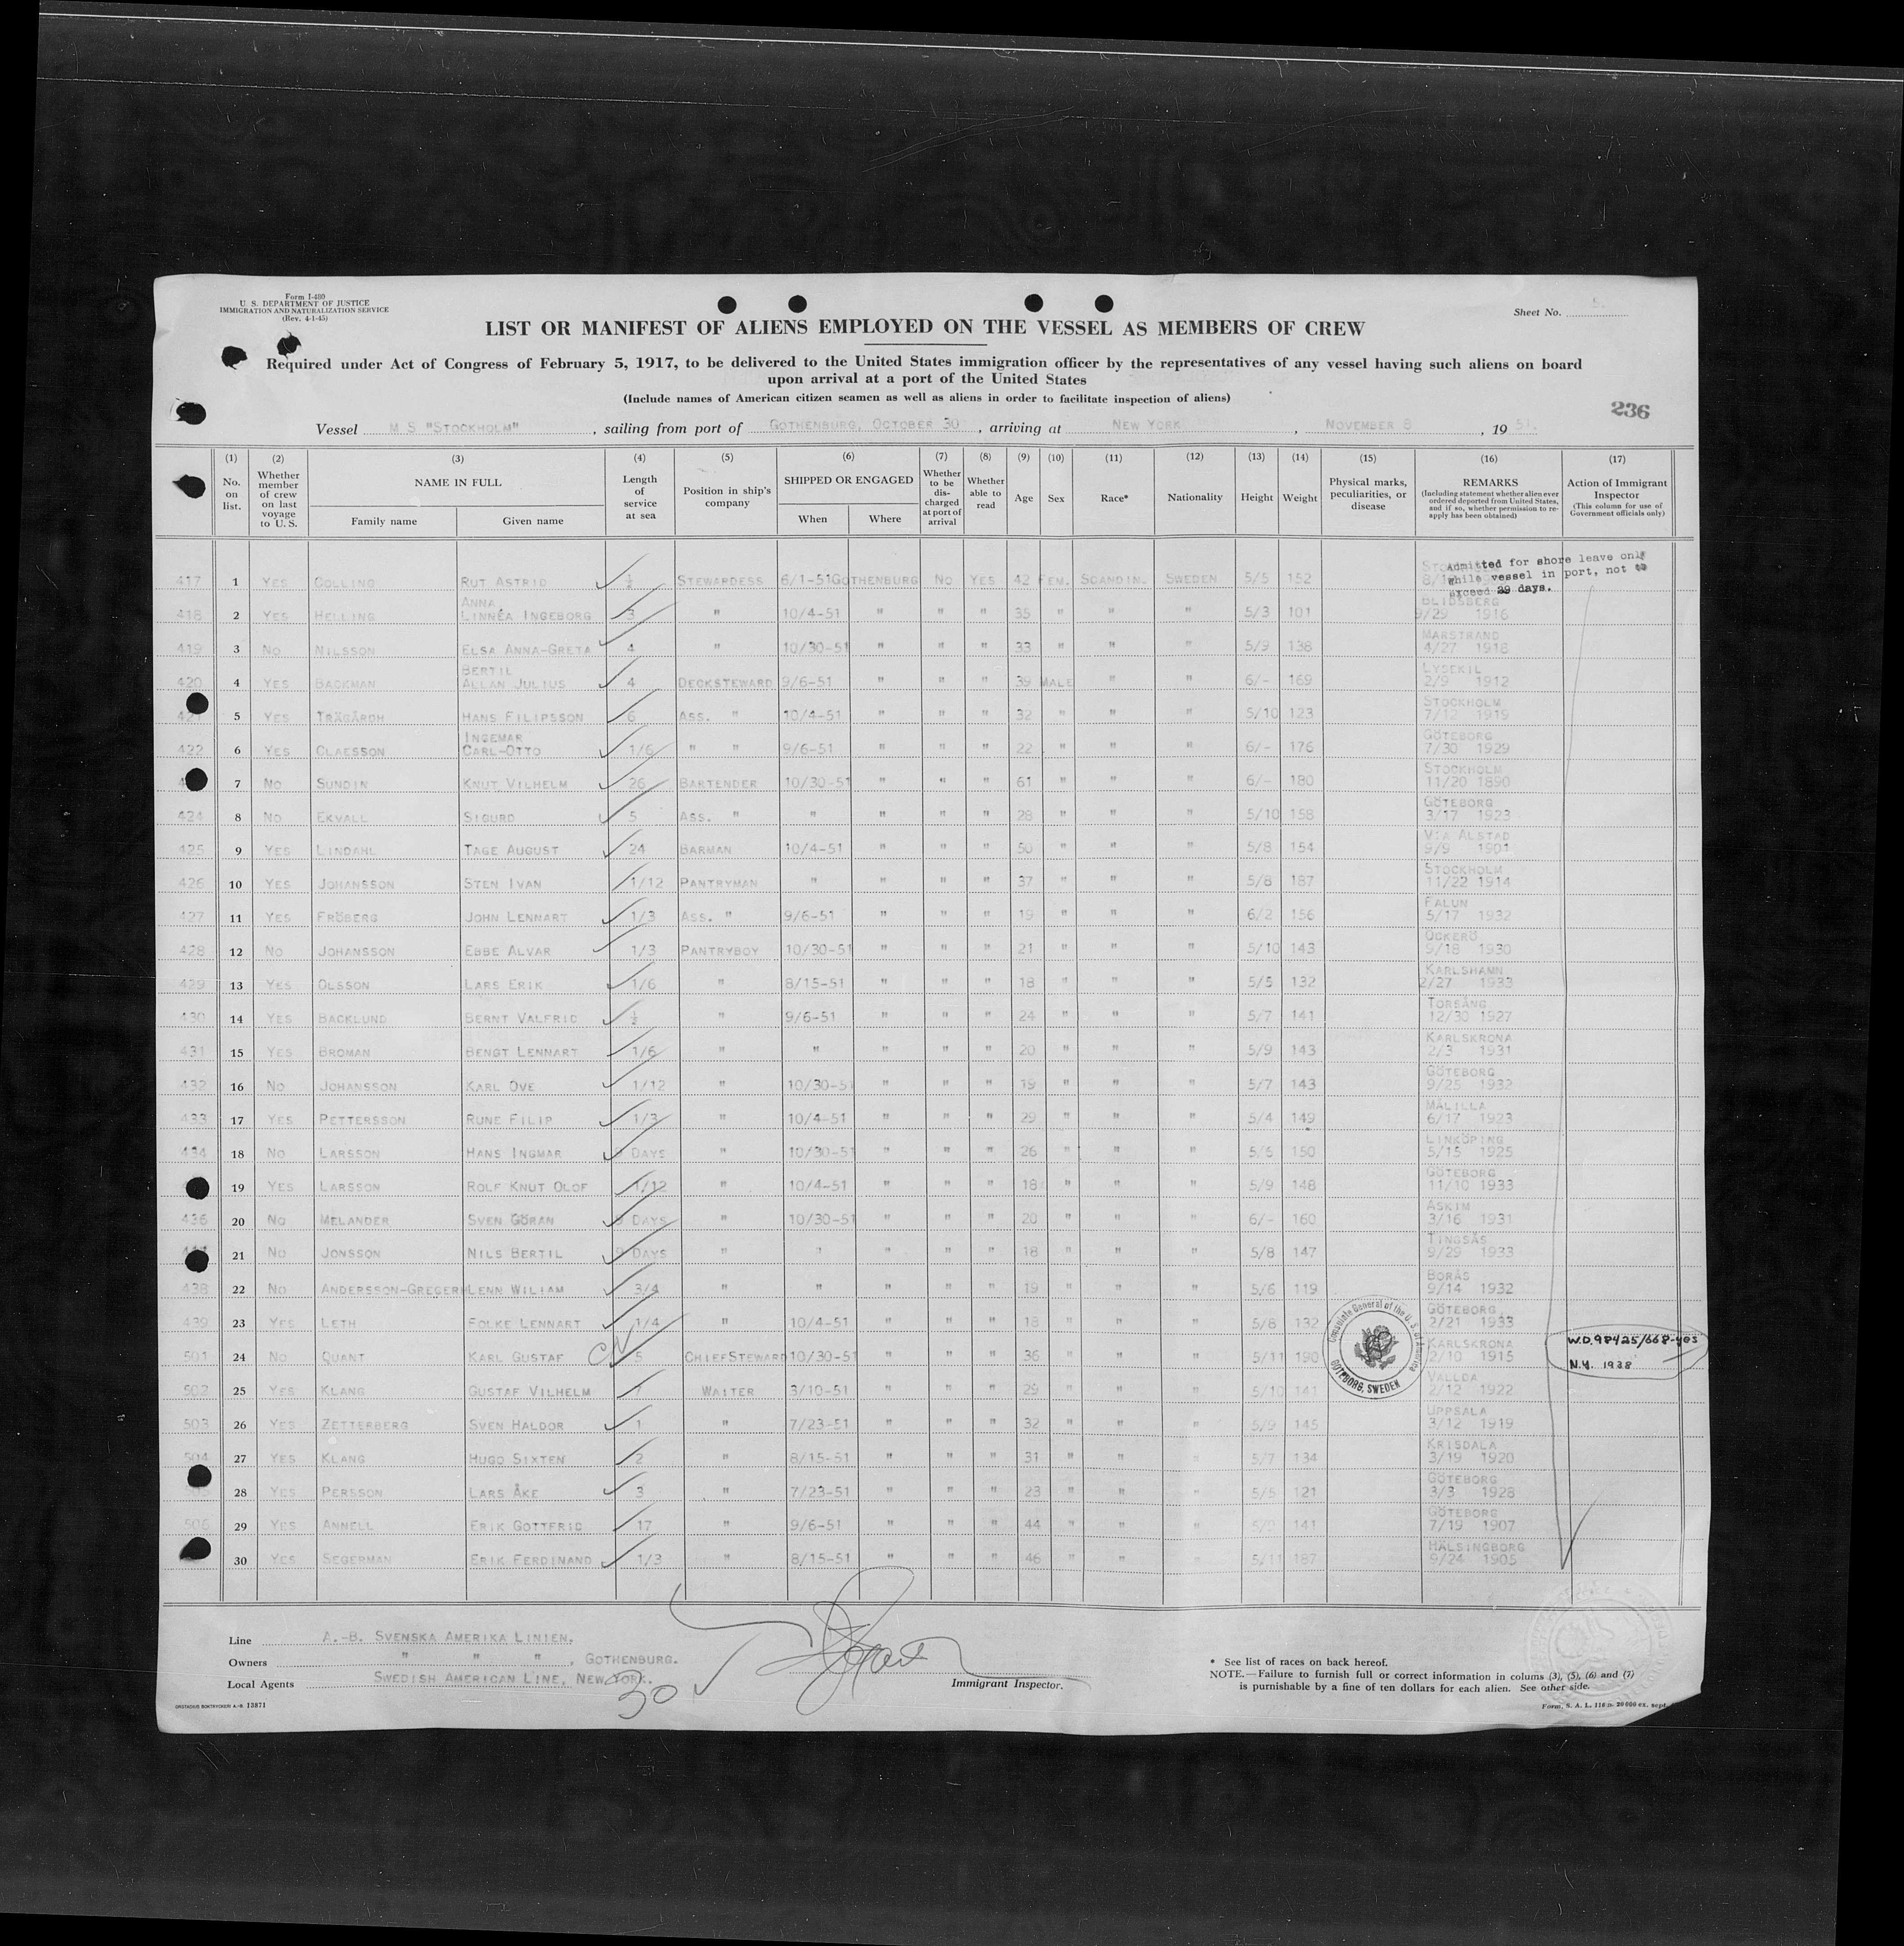 Form I-480
U. S. DEPARTMENT OF JUSTICE
IMMIGRATION AND NATURALIZATION SERVICE
(Rev. 4-1-45)
Sheet No. 5.
LIST OR MANIFEST OF ALIENS EMPLOYED ON THE VESSEL AS MEMBERS OF CREW
Required under Act of Congress of February 5, 1917, to be delivered to the United States immigration officer by the representatives of any vessel having such aliens on board
upon arrival at a port of the United States
(Include names of American citizen seamen as well as aliens in order to facilitate inspection of aliens)
236
Vessel M S "STOCKHOLM", sailing from port of GOTHENBURG, OCTOBER 30, arriving at NEW YORK, NOVEMBER 8, 19 51.
(1) No. on list. (2) Whether member of crew on last voyage to U. S. (3) NAME IN FULL Family name Given name (4) Length of service at sea (5) Position in ship's company (6) SHIPPED OR ENGAGED When Where (7) Whether to be discharged at port of arrival (8) Whether able to read (9) Age (10) Sex (11) Race* (12) Nationality (13) Height (14) Weight (15) Physical marks, peculiarities, or disease (16) REMARKS (Including statement whether alien ever ordered deported from United States, and if so, whether permission to re-apply has been obtained) (17) Action of Immigrant Inspector (This column for use of Government officials only)
Admitted for shore leave only
while vessel in port, not to
exceed 29 days.
417 1 YES COLLING RUT ASTRID ½ STEWARDESS 6/1-51 GOTHENBURG NO YES 42 FEM. SCANDIN. SWEDEN 5/5 152
418 2 YES HELLING ANNA LINNÉA INGEBORG 3 " 10/4-51 " " " 35 " " " 5/3 101 BLIDSBERG 9/29 1916
419 3 NO NILSSON ELSA ANNA-GRETA 4 " 10/30-51 " " " 33 " " " 5/9 138 MARSTRAND 4/27 1918
420 4 YES BACKMAN BERTIL ALLAN JULIUS 4 DECKSTEWARD 9/6-51 " " " 39 MALE " " 6/- 169 LYSEKIL 2/9 1912
421 5 YES TRÄGÅRDH HANS FILIPSSON 6 ASS. " 10/4-51 " " " 32 " " " 5/10 123 STOCKHOLM 7/12 1919
422 6 YES CLAESSON INGEMAR CARL-OTTO 1/6 " " 9/6-51 " " " 22 " " " 6/- 176 GÖTEBORG 7/30 1929
7 NO SUNDIN KNUT VILHELM 26 BARTENDER 10/30-51 " " " 61 " " " 6/- 180 STOCKHOLM 11/20 1890
424 8 NO EKVALL SIGURD 5 ASS. " " " " " 28 " " " 5/10 158 GÖTEBORG 3/17 1923
425 9 YES LINDAHL TAGE AUGUST 24 BARMAN 10/4-51 " " " 50 " " " 5/8 154 V:A ALSTAD 9/9 1901
426 10 YES JOHANSSON STEN IVAN 1/12 PANTRYMAN " " " " 37 " " " 5/8 187 STOCKHOLM 11/22 1914
427 11 YES FRÖBERG JOHN LENNART 1/3 ASS. " 9/6-51 " " " 19 " " " 6/2 156 FALUN 5/17 1932
428 12 NO JOHANSSON EBBE ALVAR 1/3 PANTRYBOY 10/30-51 " " " 21 " " " 5/10 143 ÖCKERÖ 9/18 1930
429 13 YES OLSSON LARS ERIK 1/6 " 8/15-51 " " " 18 " " " 5/5 132 KARLSHAMN 2/27 1933
430 14 YES BACKLUND BERNT VALFRID ½ " 9/6-51 " " " 24 " " " 5/7 141 TORSÅNG 12/30 1927
431 15 YES BROMAN BENGT LENNART 1/6 " " " " " 20 " " " 5/9 143 KARLSKRONA 2/3 1931
432 16 NO JOHANSSON KARL OVE 1/12 " 10/30-51 " " " 19 " " " 5/7 143 GÖTEBORG 9/25 1932
433 17 YES PETTERSSON RUNE FILIP 1/3 " 10/4-51 " " " 29 " " " 5/4 149 MÅLILLA 6/17 1923
434 18 NO LARSSON HANS INGMAR DAYS " 10/30-51 " " " 26 " " " 5/6 150 LINKÖPING 5/15 1925
19 YES LARSSON ROLF KNUT OLOF 1/12 " 10/4-51 " " " 18 " " " 5/9 148 GÖTEBORG 11/10 1933
436 20 NO MELANDER SVEN GÖRAN DAYS " 10/30-51 " " " 20 " " " 6/- 160 ASKIM 3/16 1931
21 NO JONSSON NILS BERTIL 9 DAYS " " " " " 18 " " " 5/8 147 TINGSÅS 9/29 1933
438 22 NO ANDERSSON-GREGER LENN WILIAM 3/4 " " " " " 19 " " " 5/6 119 BORÅS 9/14 1932
439 23 YES LETH FOLKE LENNART 1/4 " 10/4-51 " " " 18 " " " 5/8 132 GÖTEBORG 2/21 1933
501 24 NO QUANT KARL GUSTAF 5 CHIEFSTEWARD 10/30-51 " " " 36 " " " 5/11 190 KARLSKRONA 2/10 1915 W.D. 98425/668-yes
N.Y. 1938
502 25 YES KLANG GUSTAF VILHELM 7 WAITER 3/10-51 " " " 29 " " " 5/10 141 VALLDA 2/12 1922
503 26 YES ZETTERBERG SVEN HALDOR 1 " 7/23-51 " " " 32 " " " 5/9 145 UPPSALA 3/12 1919
504 27 YES KLANG HUGO SIXTEN 2 " 8/15-51 " " " 31 " " " 5/7 134 KRISDALA 3/19 1920
28 YES PERSSON LARS ÅKE 3 " 7/23-51 " " " 23 " " " 5/5 121 GÖTEBORG 3/3 1928
506 29 YES ANNELL ERIK GOTTFRID 17 " 9/6-51 " " " 44 " " " 141 GÖTEBORG 7/19 1907
30 YES SEGERMAN ERIK FERDINAND 1/3 " 8/15-51 " " " 46 " " " 5/11 187 HÄLSINGBORG 9/24 1905
Consulate General of the U. S. of America
GÖTEBORG, SWEDEN
Line A.-B. SVENSKA AMERIKA LINIEN.
Owners " " ", GOTHENBURG.
Local Agents SWEDISH AMERICAN LINE, NEW YORK.
30
Immigrant Inspector.
* See list of races on back hereof.
NOTE.—Failure to furnish full or correct information in colums (3), (5), (6) and (7)
is punishable by a fine of ten dollars for each alien. See other side.
ORSTADIUS BOKTRYCKERI A.-B. 13871
Form. S. A. L. 116 20 000 ex. sept.